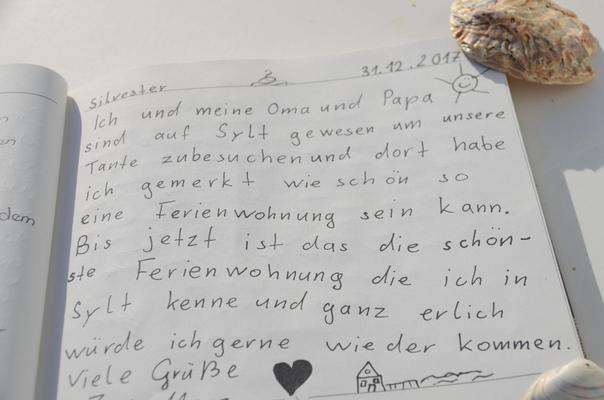 Silvester 31.12.2017
Ich und meine Oma und Papa
sind auf Sylt gewesen um unsere
Tante zubesuchen und dort habe
ich gemerkt wie schön so
eine Ferienwohnung sein kann.
Bis jetzt ist das die schön-
ste Ferienwohnung die ich in
Sylt kenne und ganz erlich
würde ich gerne wieder kommen.
Viele Grüße